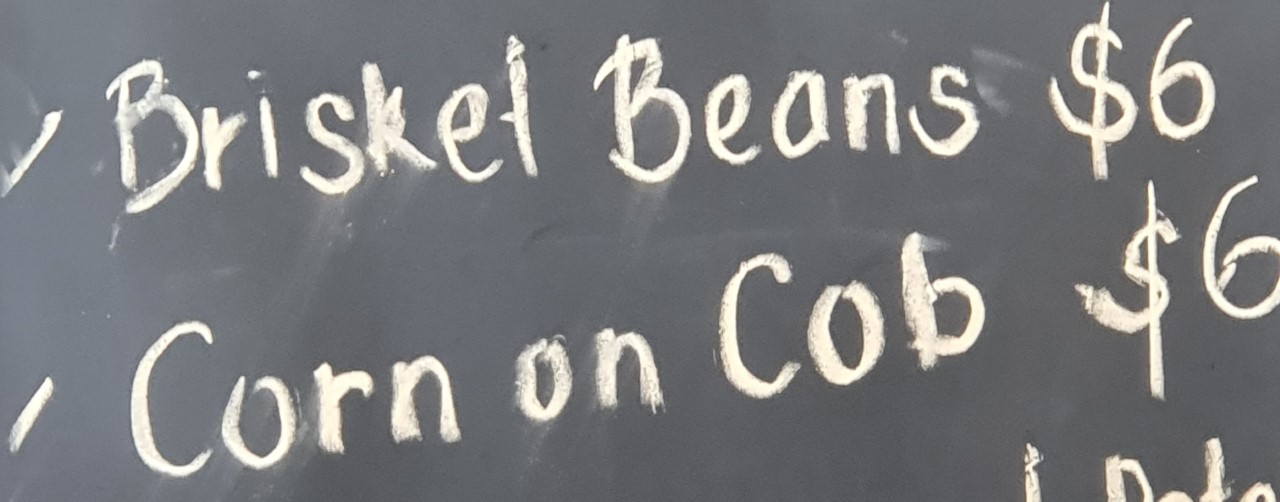 Brisket Beans $6
Corn on Cob $6